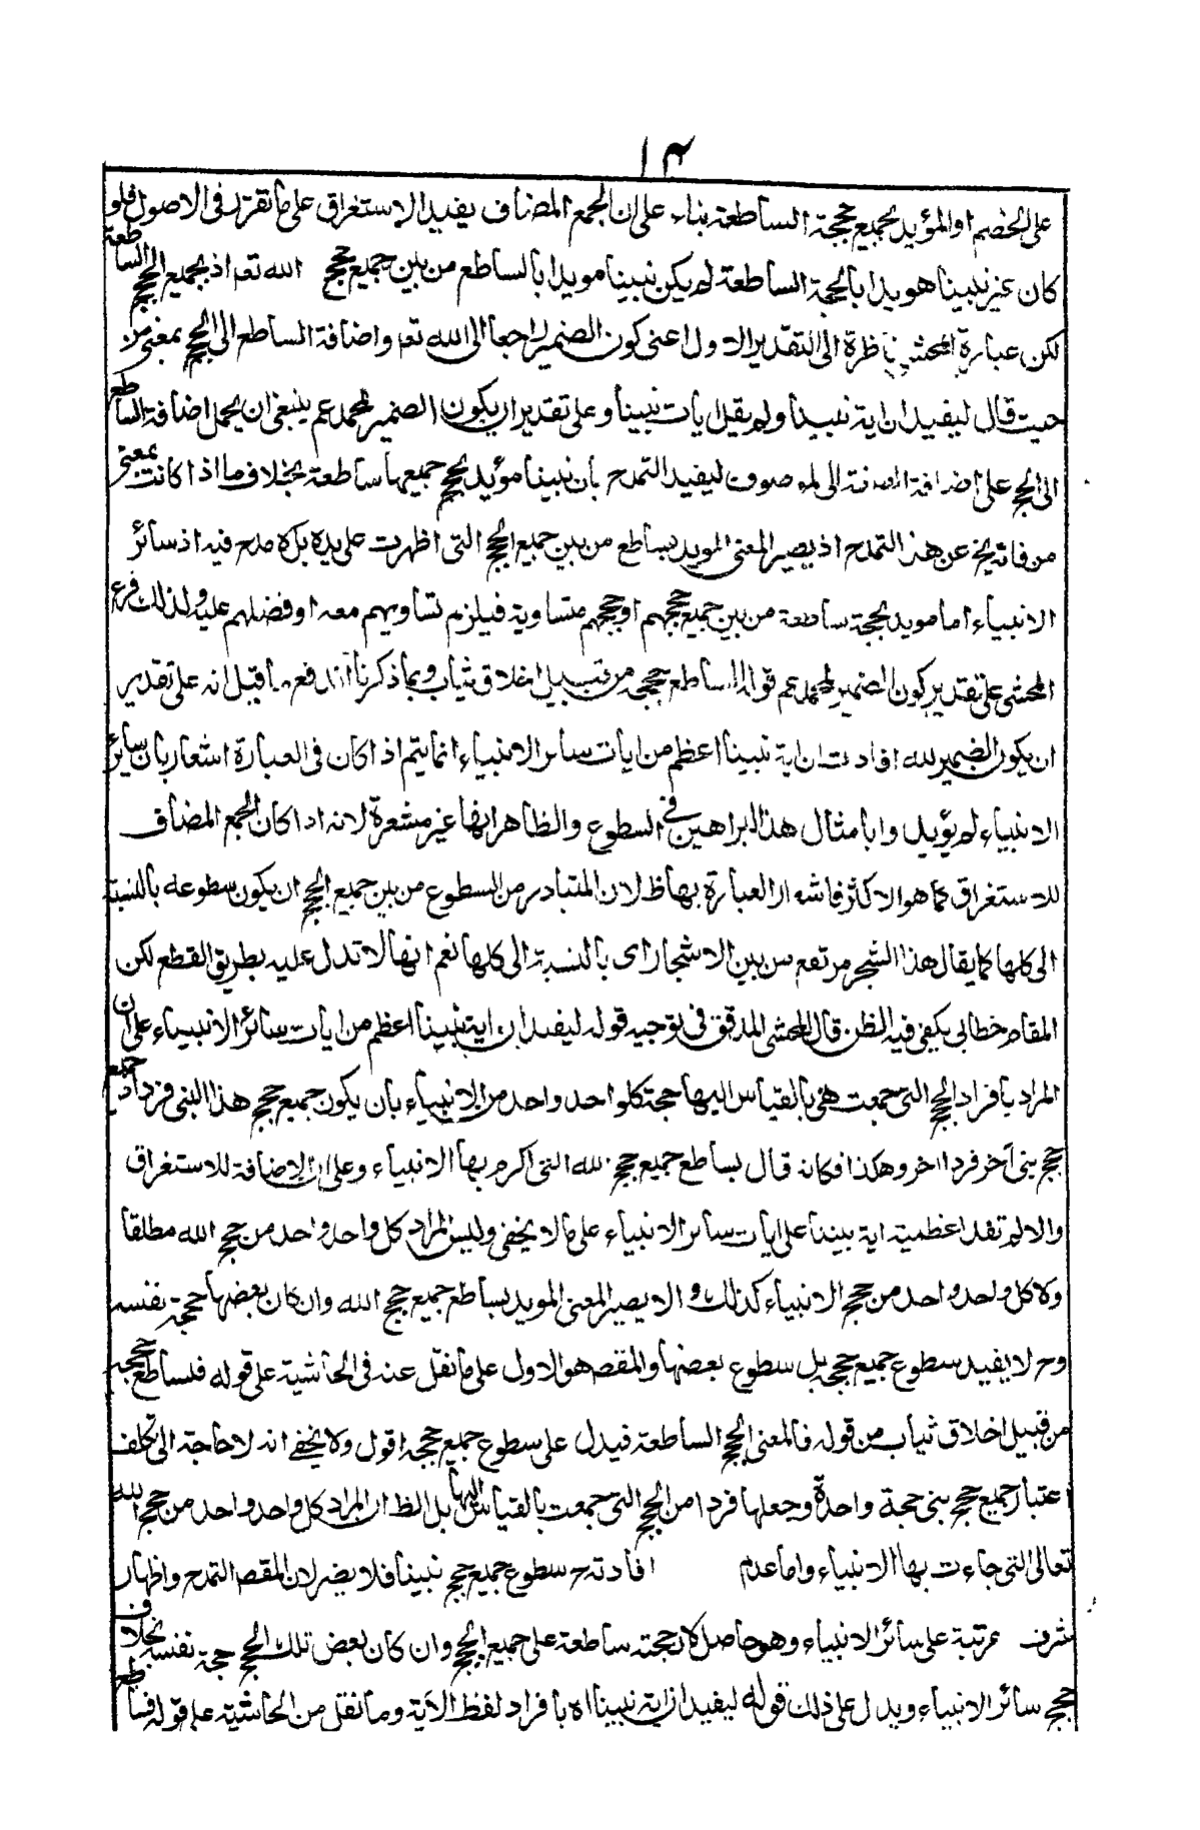 ١٣
على الخصم او المؤيد بجميع حججه الساطعة بناء على ان الجمع المضاف يفيد الاستغراق على ما تقرر فى الاصول فلو
كان غير نبينا مويدا بالحجة الساطعة لم يكن نبينا مويدا بالساطع من بين جميع حجج الله تعم اذ بجميع الحجج الساطعة
لكن عبارة المحشى ناظرة الى التقدير الاول اعنى كون الضمير راجعا الى الله تعم واضافة الساطع الى الحجج بمعنى من
حيث قال ليفيد ان اية نبينا ولم يقل ايات نبينا وعلى تقدير ان يكون الضمير لمحمد عم ينبغى ان يحمل اضافة الساطع
الى الحجج على اضافة الصفة الى الموصوف ليفيد التمدح بان نبينا مؤيد بحجج جميعها ساطعة بخلاف ما اذا كانت بمعنى
من فانه يخ عن هذا التمدح اذ يصير المعنى المويد بساطع من بين جميع الحجج التى اظهرت على يده بل لا مدح فيه اذ سائر
الانبياء اما مويد بحجة ساطعة من بين جميع حججهم او حججهم متساوية فيلزم تساويهم معه او فضلهم عليه ولذلك فرع
المحشى على تقدير كون الضمير لمحمد عم قوله الساطع حججه من قبيل اخلاق ثياب وبما ذكرنا اندفع ما قيل انه على تقدير
ان يكون الضمير لله افادت ان اية نبينا اعظم من ايات سائر الانبياء انما يتم اذا كان فى العبارة اشعار بان سائر
الانبياء لم يؤيدوا بامثال هذه البراهين فى السطوع والظاهر انها غير مشعرة لانه اذا كان الجمع المضاف
للاستغراق كما هو الاكثر فاشعار العبارة بها ظ لان المتبادر من السطوع من بين جميع الحجج ان يكون سطوعه بالنسبة
الى كلها كما يقال هذا الشجر مرتفع من بين الاشجار اى بالنسبة الى كلها نعم انها لا تدل عليه بطريق القطع لكن
المقام خطابى يكفى فيه الظن قال المحشى المدقق فى توجيه قوله ليفيد ان اية نبينا اعظم من ايات سائر الانبياء على ان
المراد بافراد الحجج التى جمعت هى بالقياس اليها حجة كل واحد واحد من الانبياء بان يكون جميع حجج هذا النبى فردا وجميع
حجج نبى آخر فردا اخر وهكذا فكانه قال بساطع جميع حجج الله التى اكرم بها الانبياء وعلى ان الاضافة للاستغراق
والا لم تفد اعظمية اية نبينا على ايات سائر الانبياء على ما لا يخفى وليس المراد كل واحد واحد من حجج الله مطلقا
ولا كل واحد واحد من حجج الانبياء كذلك والا يصير المعنى المويد بساطع جميع حجج الله وان كان بعضها حجة نفسه
وح لا يفيد سطوع جميع حججه بل سطوع بعضها والمقص هو الاول على ما نقل عنه فى الحاشية على قوله فلساطع حججه
من قبيل اخلاق ثياب من قوله فالمعنى الحجج الساطعة فيدل على سطوع جميع حججه اقول ولا يخفى انه لا حاجة الى تكلف
اعتبار جميع حجج نبى حجة واحدة وجعلها فردا من الحجج التى جمعت بالقياس اليها بل الظ ان المراد كل واحد واحد من حجج الله
تعالى التى جاءت بها الانبياء واما عدم افادته سطوع جميع حجج نبينا فلا يضر لان المقص التمدح واظهار
شرف مرتبة على سائر الانبياء وهو حاصل لان حجته ساطعة على جميع الحجج وان كان بعض تلك الحجج حجة نفسه بخلاف
حجج سائر الانبياء ويدل على ذلك قوله ليفيد ان اية نبينا اه بافراد لفظ الآية وما نقل من الحاشية على قوله فساطع